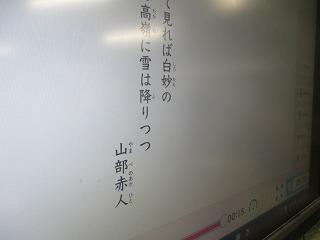 て見れば白妙の
高嶺に雪は降りつつ
山部赤人
00:15